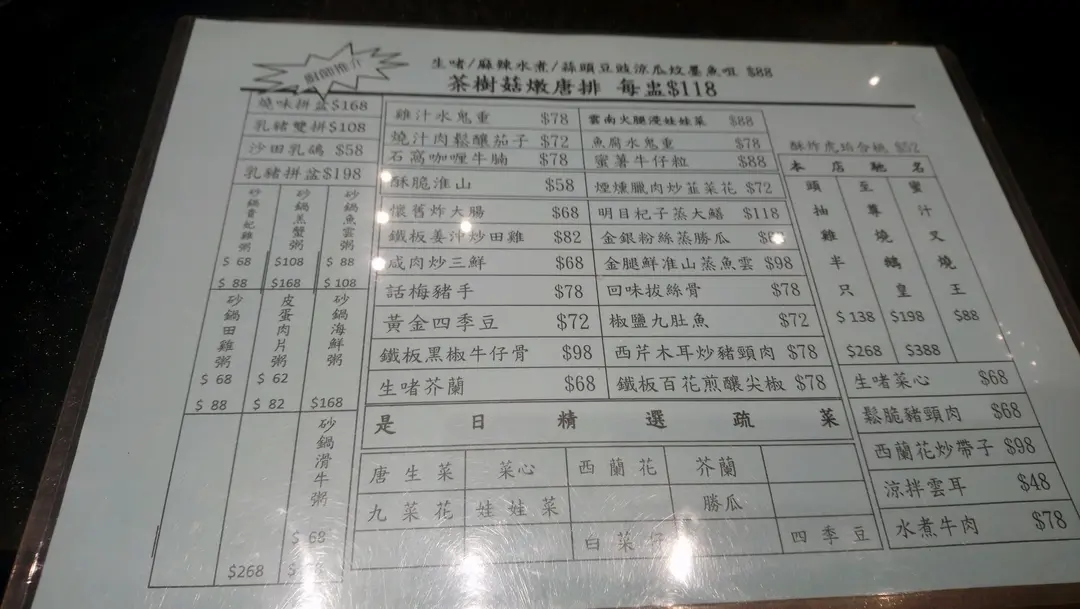 廚師推介
生啫/麻辣水煮/蒜頭豆豉涼瓜炆墨魚咀 $88
茶樹菇燉唐排 每盅$118
燒味拼盆$168
乳豬雙拼$108
沙田乳鴿 $58
乳豬拼盆$198
砂鍋貴妃雞粥 $68 $88
砂鍋羔蟹粥 $108 $168
砂鍋魚雲粥 $88 $108
砂鍋田雞粥 $68 $88
皮蛋肉片粥 $62 $82
砂鍋海鮮粥 $168
$268
砂鍋滑牛粥 $68
雞汁水鬼重 $78
燒汁肉鬆釀茄子 $72
石窩咖喱牛腩 $78
酥脆淮山 $58
懷舊炸大腸 $68
鐵板姜沖炒田雞 $82
咸肉炒三鮮 $68
話梅豬手 $78
黃金四季豆 $72
鐵板黑椒牛仔骨 $98
生啫芥蘭 $68
雲南火腿浸娃娃菜 $88
魚腐水鬼重 $78
蜜薯牛仔粒 $88
煙燻臘肉炒韮菜花 $72
明目杞子蒸大鱔 $118
金銀粉絲蒸勝瓜
金腿鮮淮山蒸魚雲 $98
回味拔絲骨 $78
椒鹽九肚魚 $72
西芹木耳炒豬頸肉 $78
鐵板百花煎釀尖椒 $78
是日精選疏菜
唐生菜 菜心 西蘭花 芥蘭
九菜花 娃娃菜 勝瓜
白菜仔 四季豆
本店馳名
頭抽雞半只 $138 $268
至尊燒鵝皇 $198 $388
蜜汁叉燒王 $88
生啫菜心 $68
鬆脆豬頸肉 $68
西蘭花炒帶子 $98
涼拌雲耳 $48
水煮牛肉 $78